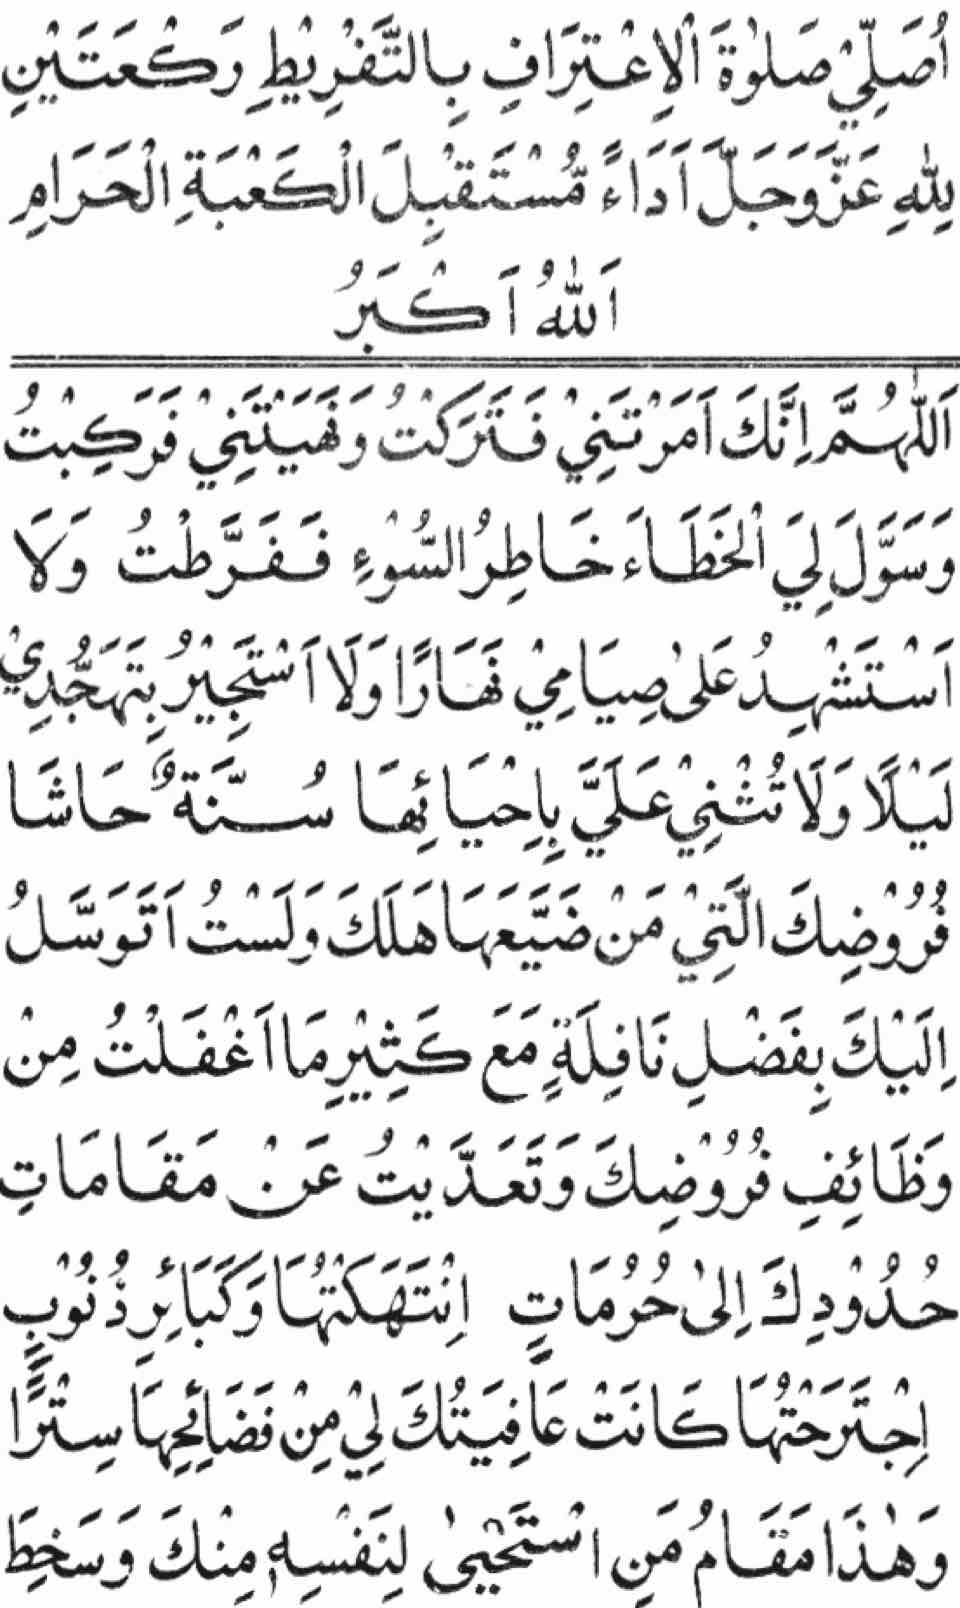 اُصَلِّيْ صَلٰوةَ الْاِعْتِرَافِ بِالتَّفْرِيْطِ رَكْعَتَيْنِ
لِلّٰهِ عَزَّ وَجَلَّ اَدَاءً مُّسْتَقْبِلَ الْكَعْبَةِ الْحَرَامِ
اَللّٰهُ اَكْبَرُ
اَللّٰهُمَّ اِنَّكَ اَمَرْتَنِيْ فَتَرَكْتُ وَنَهَيْتَنِيْ فَرَكِبْتُ
وَسَوَّلَ لِيَ الْخَطَاءَ خَاطِرُ السُّوْءِ فَفَرَّطْتُ وَلَا
اَسْتَشْهِدُ عَلٰى صِيَامِيْ نَهَارًا وَلَا اَسْتَجِيْرُ بِتَهَجُّدِيْ
لَيْلًا وَلَا تُثْنِيْ عَلَيَّ بِاِحْيَائِهَا سُنَّةٌ حَاشَا
فُرُوْضِكَ الَّتِيْ مَنْ ضَيَّعَهَا هَلَكَ وَلَسْتُ اَتَوَسَّلُ
اِلَيْكَ بِفَضْلِ نَافِلَةٍ مَعَ كَثِيْرِ مَا اَغْفَلْتُ مِنْ
وَظَائِفِ فُرُوْضِكَ وَتَعَدَّيْتُ عَنْ مَقَامَاتِ
حُدُوْدِكَ اِلٰى حُرُمَاتٍ اِنْتَهَكْتُهَا وَكَبَائِرِ ذُنُوْبٍ
اِجْتَرَحْتُهَا كَانَتْ عَافِيَتُكَ لِيْ مِنْ فَضَائِحِهَا سِتْرًا
وَهٰذَا مَقَامُ مَنِ اسْتَحْيٰى لِنَفْسِهٖ مِنْكَ وَسَخِطَ